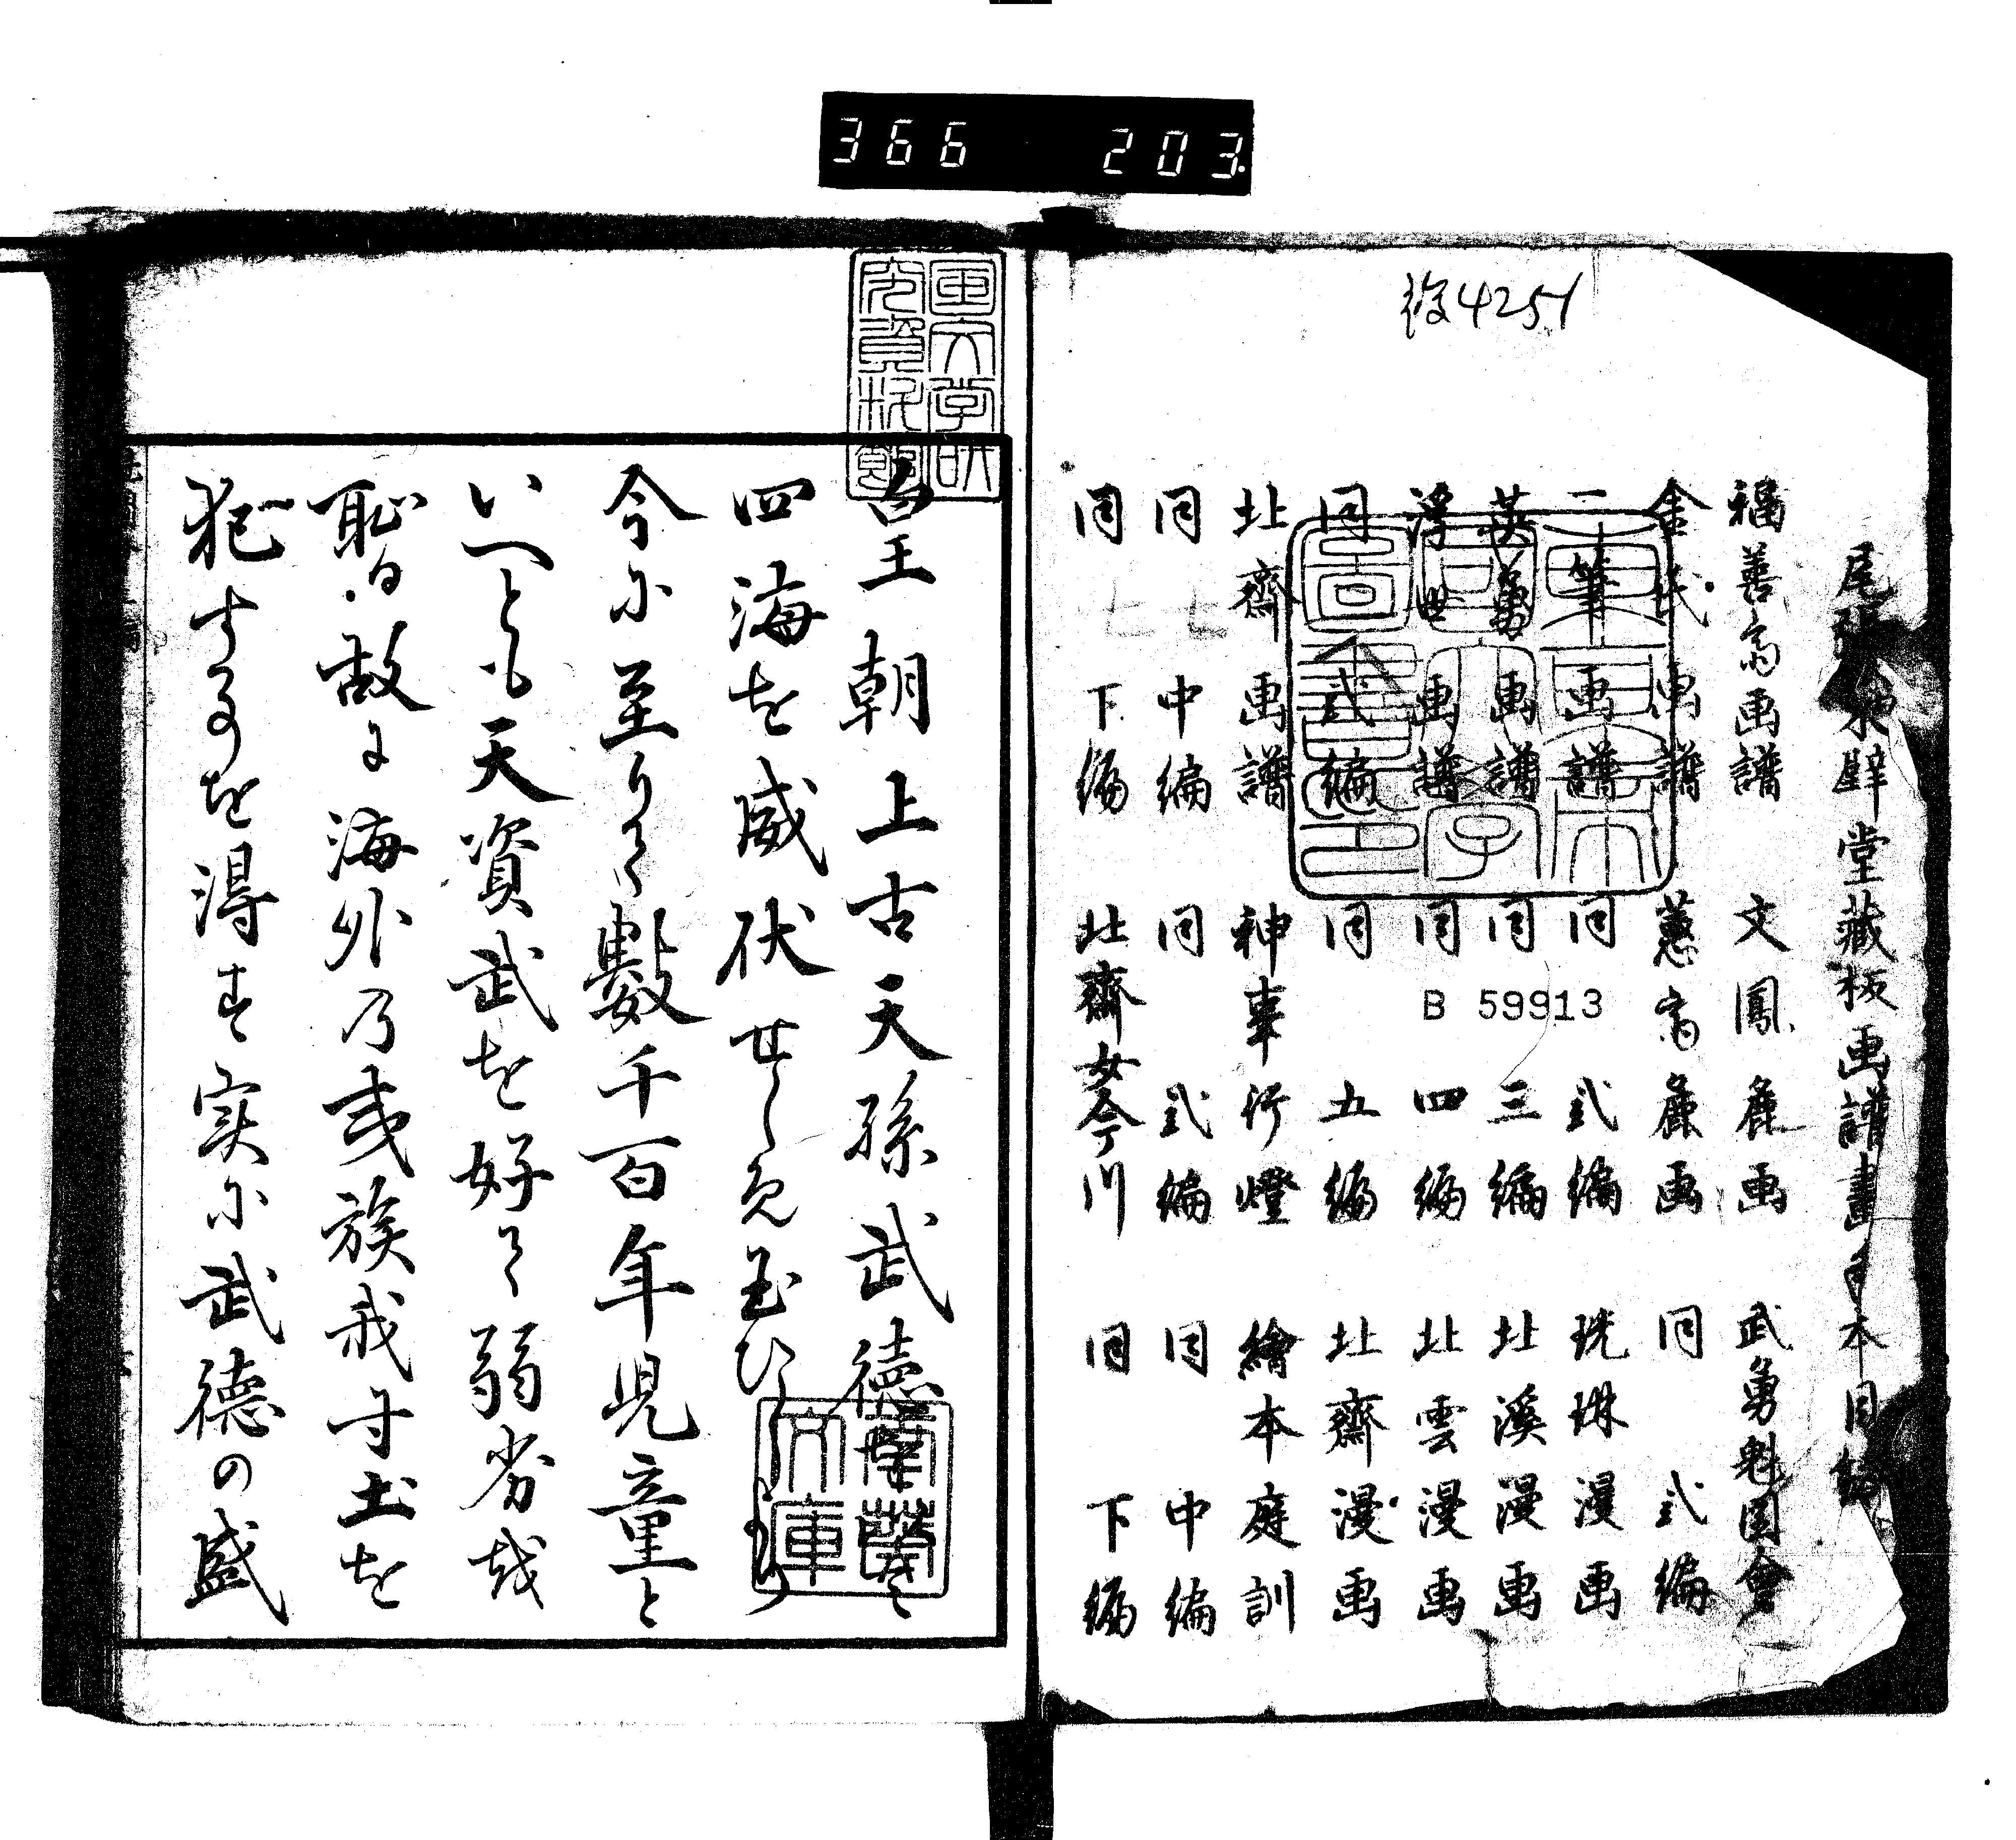 366 203
後4251
尾張東壁堂蔵板画譜畫手本目録
福善斎画譜 文鳳麁画 武勇魁図會
金氏画譜 蕙斎麁画 同 弐編
一筆画譜 同 弐編 珖琳漫画
英勇画譜 同 三編 北溪漫画
浮世画譜 同 四編 北雲漫画
同 弐編 同 五編 北齋漫画
北齋画譜 神事行燈 繪本庭訓
同 中編 同 弐編 同 中編
同 下編 北齋女今川 同 下編
B 59913
国文学研
究資料館
皇朝上古天孫武徳
四海を威伏せしめ玉ひしより
今に至りて數千百年児童と
いへとも天資武を好て弱劣を
恥る故に海外乃夷族我寸土を
犯す事を得す実に武徳の盛
南葵
文庫